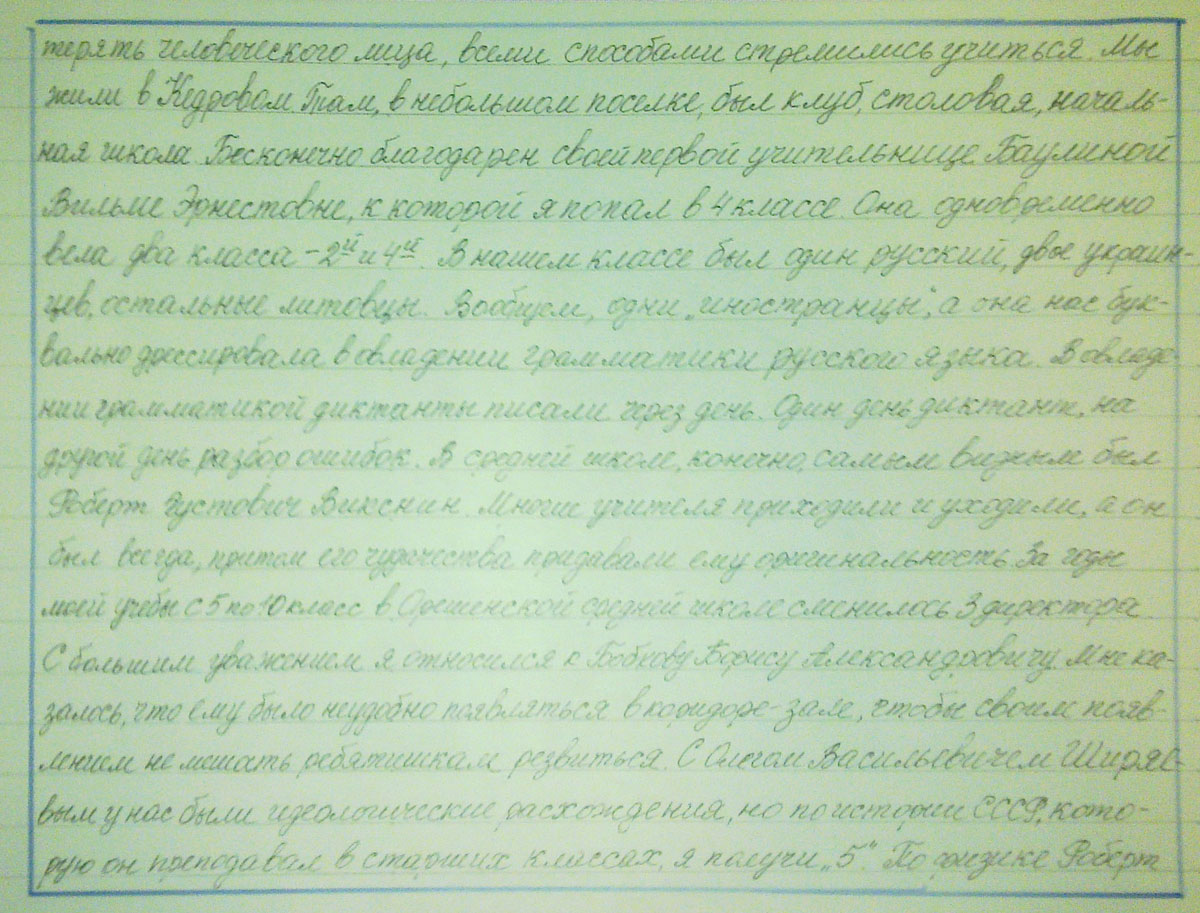 терять человеческого лица, всеми способами стремились учиться. Мы
жили в Кедровом. Там, в небольшом поселке, был клуб, столовая, началь-
ная школа. Бесконечно благодарен своей первой учительнице Баулиной
Вильме Эрнестовне, к которой я попал в 4 классе. Она одновременно
вела два класса – 2й и 4й. В нашем классе был один русский, двое украин-
цев, остальные литовцы. Вообщем, одни „иностранцы“, а она нас бук-
вально дрессировала в овладении грамматики русского языка. В овладе-
нии грамматикой диктанты писали через день. Один день диктант, на
другой день разбор ошибок. В средней школе, конечно, самым видным был
Роберт Густович Викснин. Многие учителя приходили и уходили, а он
был всегда, притом его чудачества придавали ему оригинальность. За годы
моей учебы с 5 по 10 класс в Орешенской средней школе сменилось 3 директора.
С большим уважением я относился к Бобкову Борису Александровичу. Мне ка-
залось, что ему было неудобно появляться в коридоре-зале, чтобы своим появ-
лением не мешать ребятишкам резвиться. С Олегом Васильевичем Ширяе-
вым у нас были идеологические расхождения, но по истории СССР, кото-
рую он преподавал в старших классах, я получи „5“. По физике Роберт